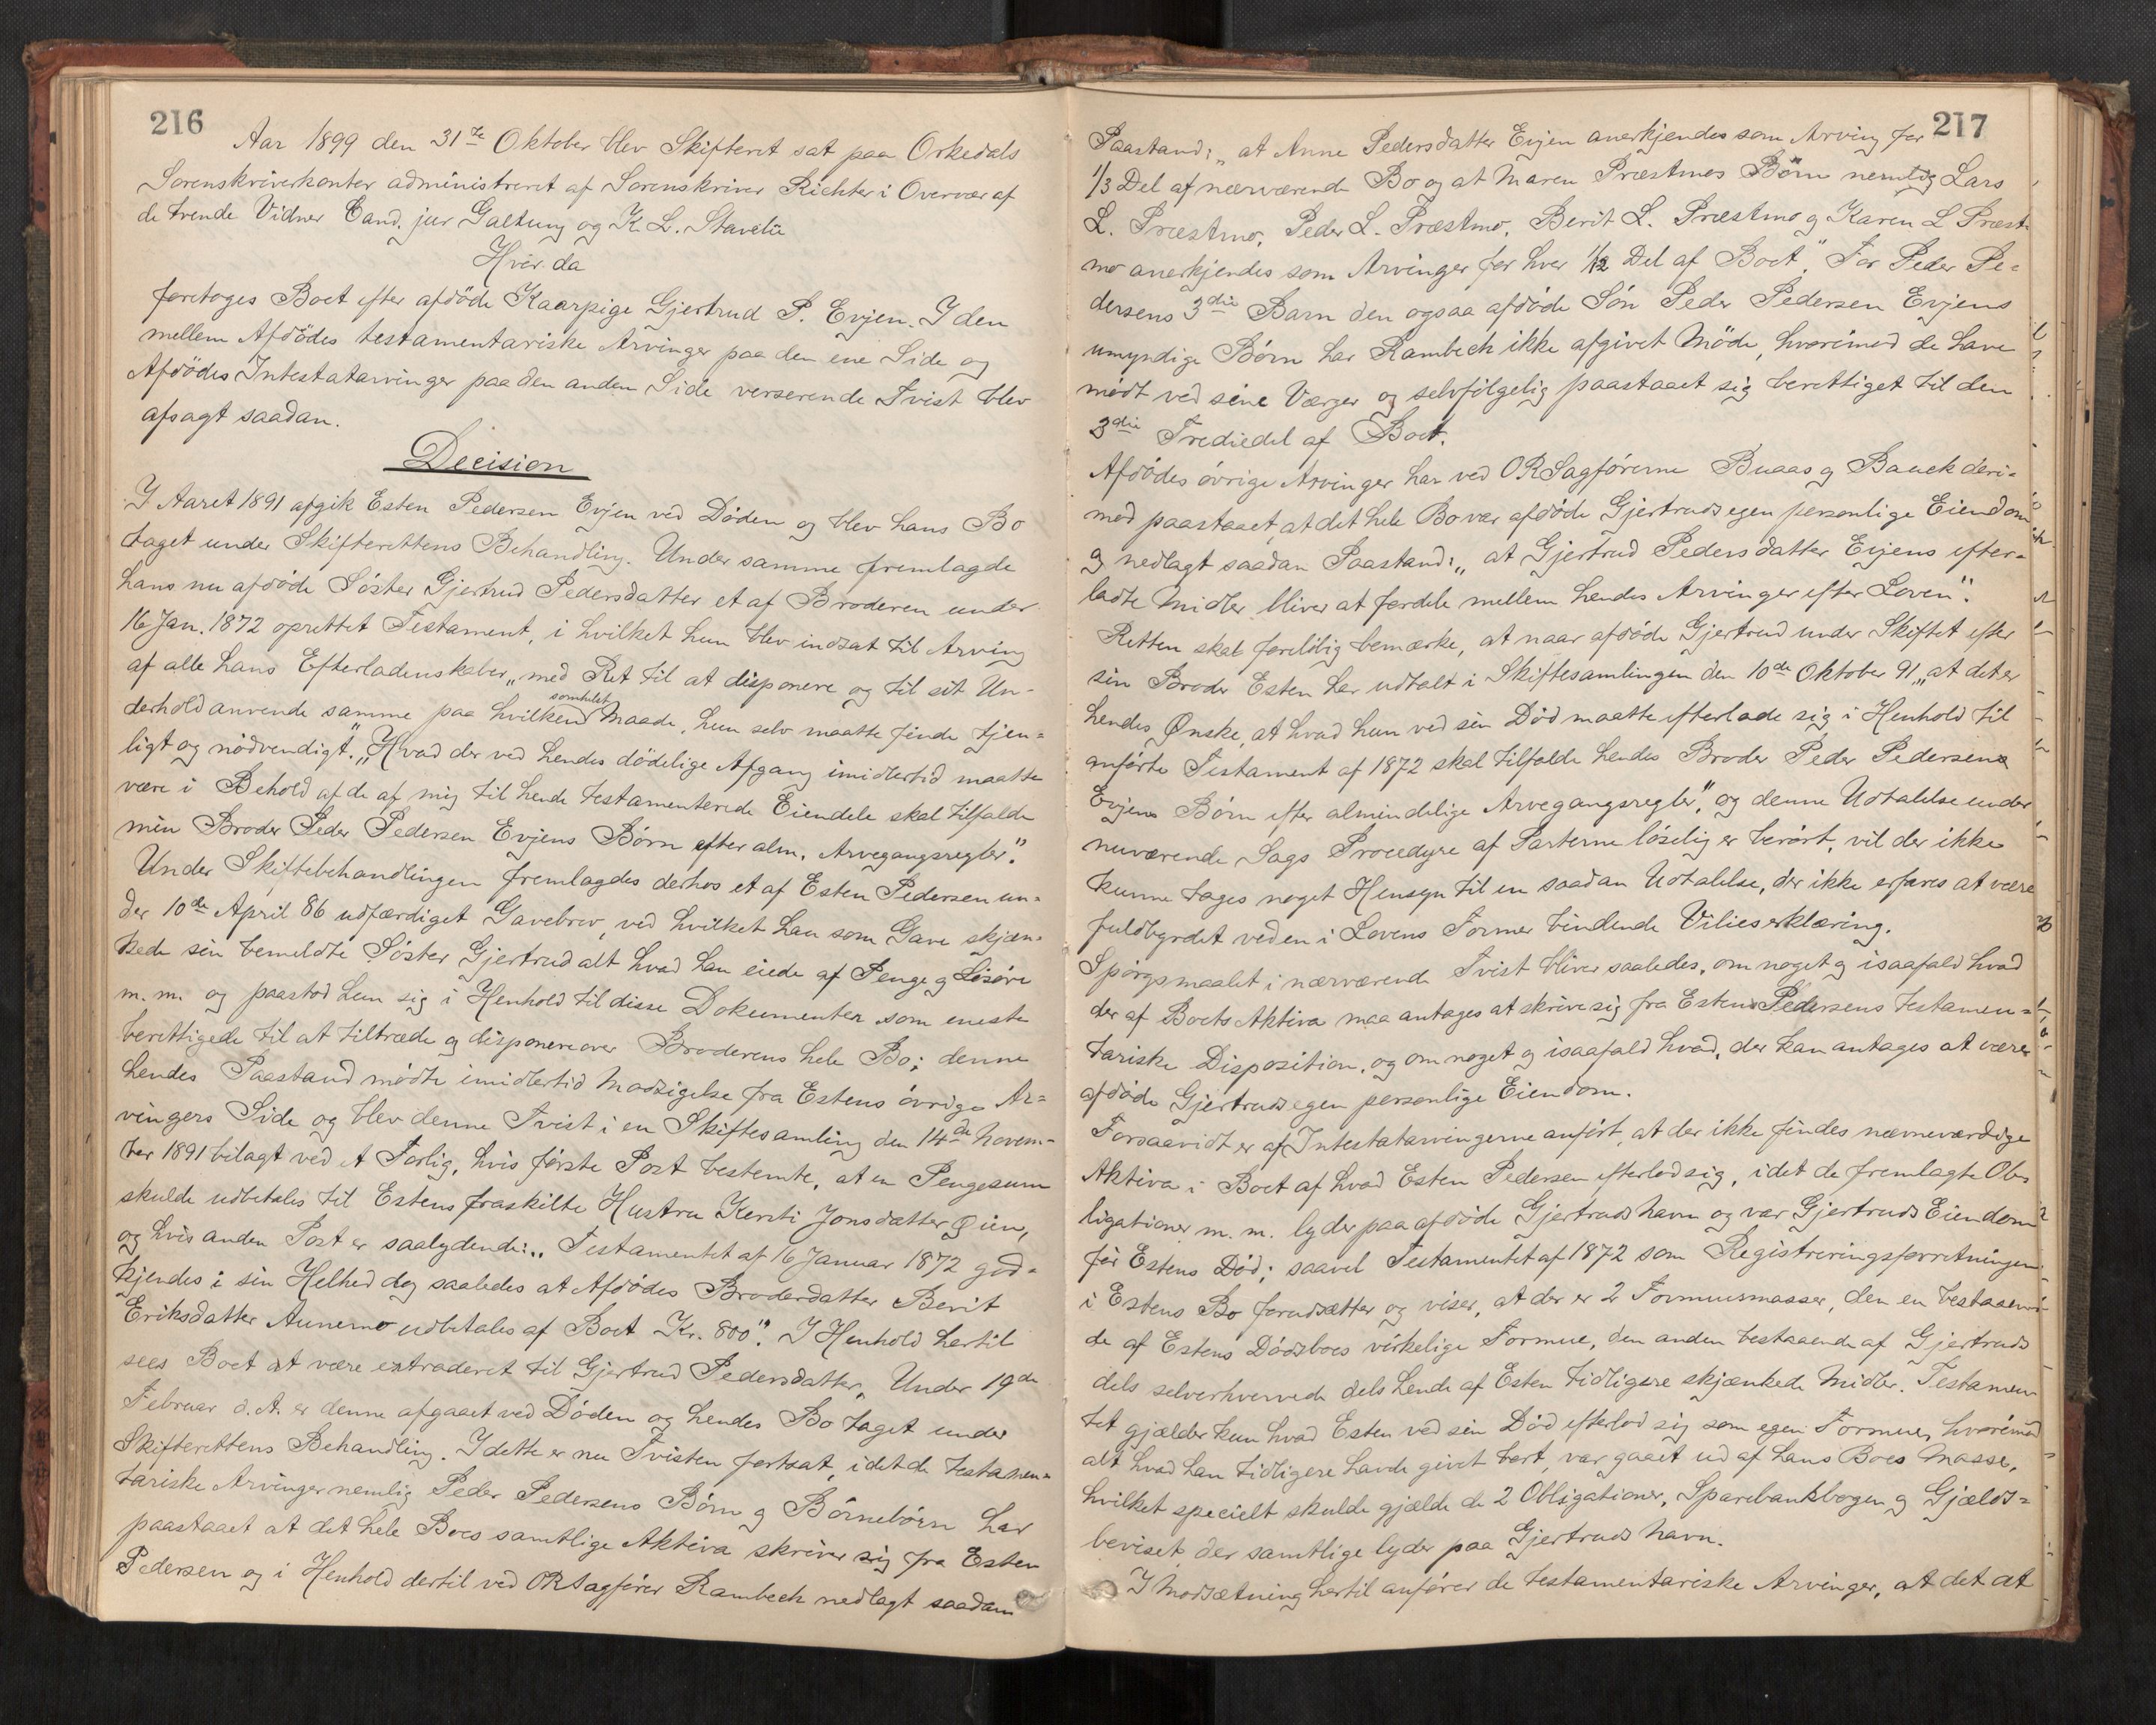 216
Aar 1899 den 31te Oktober blev Skifteret sat paa Orkedals
Sorenskriverkontor administreret af Sorenskriver Richter i Overvær af
de tvende Vidner Cand. jur Galtung og K. L. Stavelie
Hvor da
foretoges Boet efter afdöde Kaarpige Gjertrud P. Evjen. I den
mellem Afdödes testamentariske Arvinger paa den ene Side og
Afdödes Intestatarvinger paa den anden Side verserende Tvist blev
afsagt saadan.
Decision
I Aaret 1891 afgik Esten Pedersen Evjen ved Döden og blev hans Bo
taget under Skifterettens Behandling. Under samme fremlagde
hans nu afdöde Söster Gjertrud Pedersdatter et af Broderen under
16 Jan. 1872 oprettet Testament, i hvilket hun blev indsat til Arving
af alle hans Efterladenskaber „med Ret til at disponere og til sit Un-
derhold anvende samme paa hvilkensomhelst Maade, hun selv maatte finde tjen=
ligt og nödvendigt." „Hvad der ved hendes dödelige Afgang imidlertid maatte
være i Behold af de af mig til hende testamenterede Eiendele skal tilfalde
min Broder Peder Pedersen Evjens Börn efter alm. Arvegangsregler."
Under Skiftebehandlingen fremlagdes derhos et af Esten Pedersen un=
der 10de April 86 udfærdiget Gavebrev, ved hvilket han som Gave skjæn=
kede sin bemeldte Söster Gjertrud alt hvad han eiede af Penge og Lösöre
m. m. og paastod hun sig i Henhold til disse Dokumenter som eneste
berettigede til at tiltræde og disponere over Broderens hele Bo; denne
hendes Paastand mödte imidlertid Modsigelse fra Estens övrige Ar=
vingers Side og blev denne Tvist i en Skiftesamling den 14de Novem-
ber 1891 bilagt ved et Forlig, hvis förste Post bestemte, at en Pengesum
skulde udbetales til Estens fraskilte Hustru Kersti Jonsdatter Øien,
og hvis anden Post er saalydende: „Testamentet af 16 Januar 1872 god=
kjendes i sin Helhed dog saaledes at Afdödes Broderdatter Berit
Eriksdatter Aunemo udbetales af Boet Kr. 800". I Henhold hertil
sees Boet at være extraderet til Gjertrud Pedersdatter. Under 19de
Februar d. A. er denne afgaaet ved Döden og hendes Bo taget under
Skifterettens Behandling. I dette er nu Tvisten fortsat, idet de testamen=
tariske Arvinger nemlig Peder Pedersens Börn og Börnebörn har
paastaaet at det hele Boes samtlige Aktiva skriver sig fra Esten
Pedersen og i Henhold dertil ved ORSagförer Rambech nedlagt saadan
217
Paastand: „at Anne Pedersdatter Evjen anerkjendes som Arving for
1/3 Del af nærværende Bo og at Maren Præstmos Börn nemlig Lars
L. Præstmo, Peder L. Præstmo, Berit L. Præstmo og Karen L Præst-
mo anerkjendes som Arvinger for hver 1/12 Del af Boet". For Peder Pe=
dersens 3die Barn den ogsaa afdöde Sön Peder Pedersen Evjens
umyndige Börn har Rambech ikke afgivet Möde, hvorimod de have
mödt ved sine Værger og selvfölgelig paastaaet sig berettiget til den
3die Trediedel af Boet.
Afdödes övrige Arvinger har ved ORSagförerne Buaas og Bauck deri-
mod paastaaet, at det hele Bo var afdöde Gjertruds egen personlige Eiendom
og nedlagt saadan Paastand: „at Gjertrud Pedersdatter Evjens efter=
ladte Midler bliver at fordele mellem hendes Arvinger efter Loven".
Retten skal foreløbig bemærke, at naar afdöde Gjertrud under Skiftet efter
sin Broder Esten har udtalt i Skiftesamlingen den 10de Oktober 91 „at det er
hendes Ønske, at hvad hun ved sin Död maatte efterlade sig i Henhold til
anförte Testament af 1872 skal tilfalde hendes Broder Peder Pedersens
Evjens Börn efter almindelige Arvegangsregler", og denne Udtalelse under
nuværende Sags Procedyre af Parterne löselig er berört, vil der ikke
kunne tages noget Hensyn til en saadan Udtalelse, der ikke erfares at være
fuldbyrdet ved en i Lovens Former bindende Villieserklæring.
Spörgsmaalet i nærværende Tvist bliver saaledes, om noget og isaafald hvad
der af Boets Aktiva maa antages at skrive sig fra Estens Pedersens testamen=
tariske Disposition, og om noget og isaafald hvad, der kan antages at være
afdöde Gjertruds egen personlige Eiendom.
Forsaavidt er af Intestatarvingerne anfört, at der ikke findes nævneværdige
Aktiva i Boet af hvad Esten Pedersen efterlod sig, idet de fremlagte Ob=
ligationer m. m. lyder paa afdöde Gjertruds Navn og var Gjertruds Eiendom
för Estens Död; saavel Testamentet af 1872 som Registreringsforretningen
i Estens Bo forudsætter og viser, at der er 2 Formuesmasser, den en bestaaen-
de af Estens Dödsboes virkelige Formue, den anden bestaaende af Gjertruds
dels selverhvervede dels hende af Esten tidligere skjænkede Midler. Testamen
tet gjælder kun hvad Esten ved sin Död efterlod sig som egen Formue, hvorimod
alt hvad han tidligere havde givet bort, var gaaet ud af hans Boes Masse,
hvilket specielt skulde gjælde de 2 Obligationer, Sparebankbogen og Gjælds=
beviset, der samtlige lyder paa Gjertruds Navn.
I Modsætning hertil anförer de testamentariske Arvinger, at det at